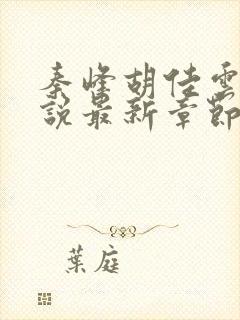 秦峰胡佳雲
說最新章節
葉庭